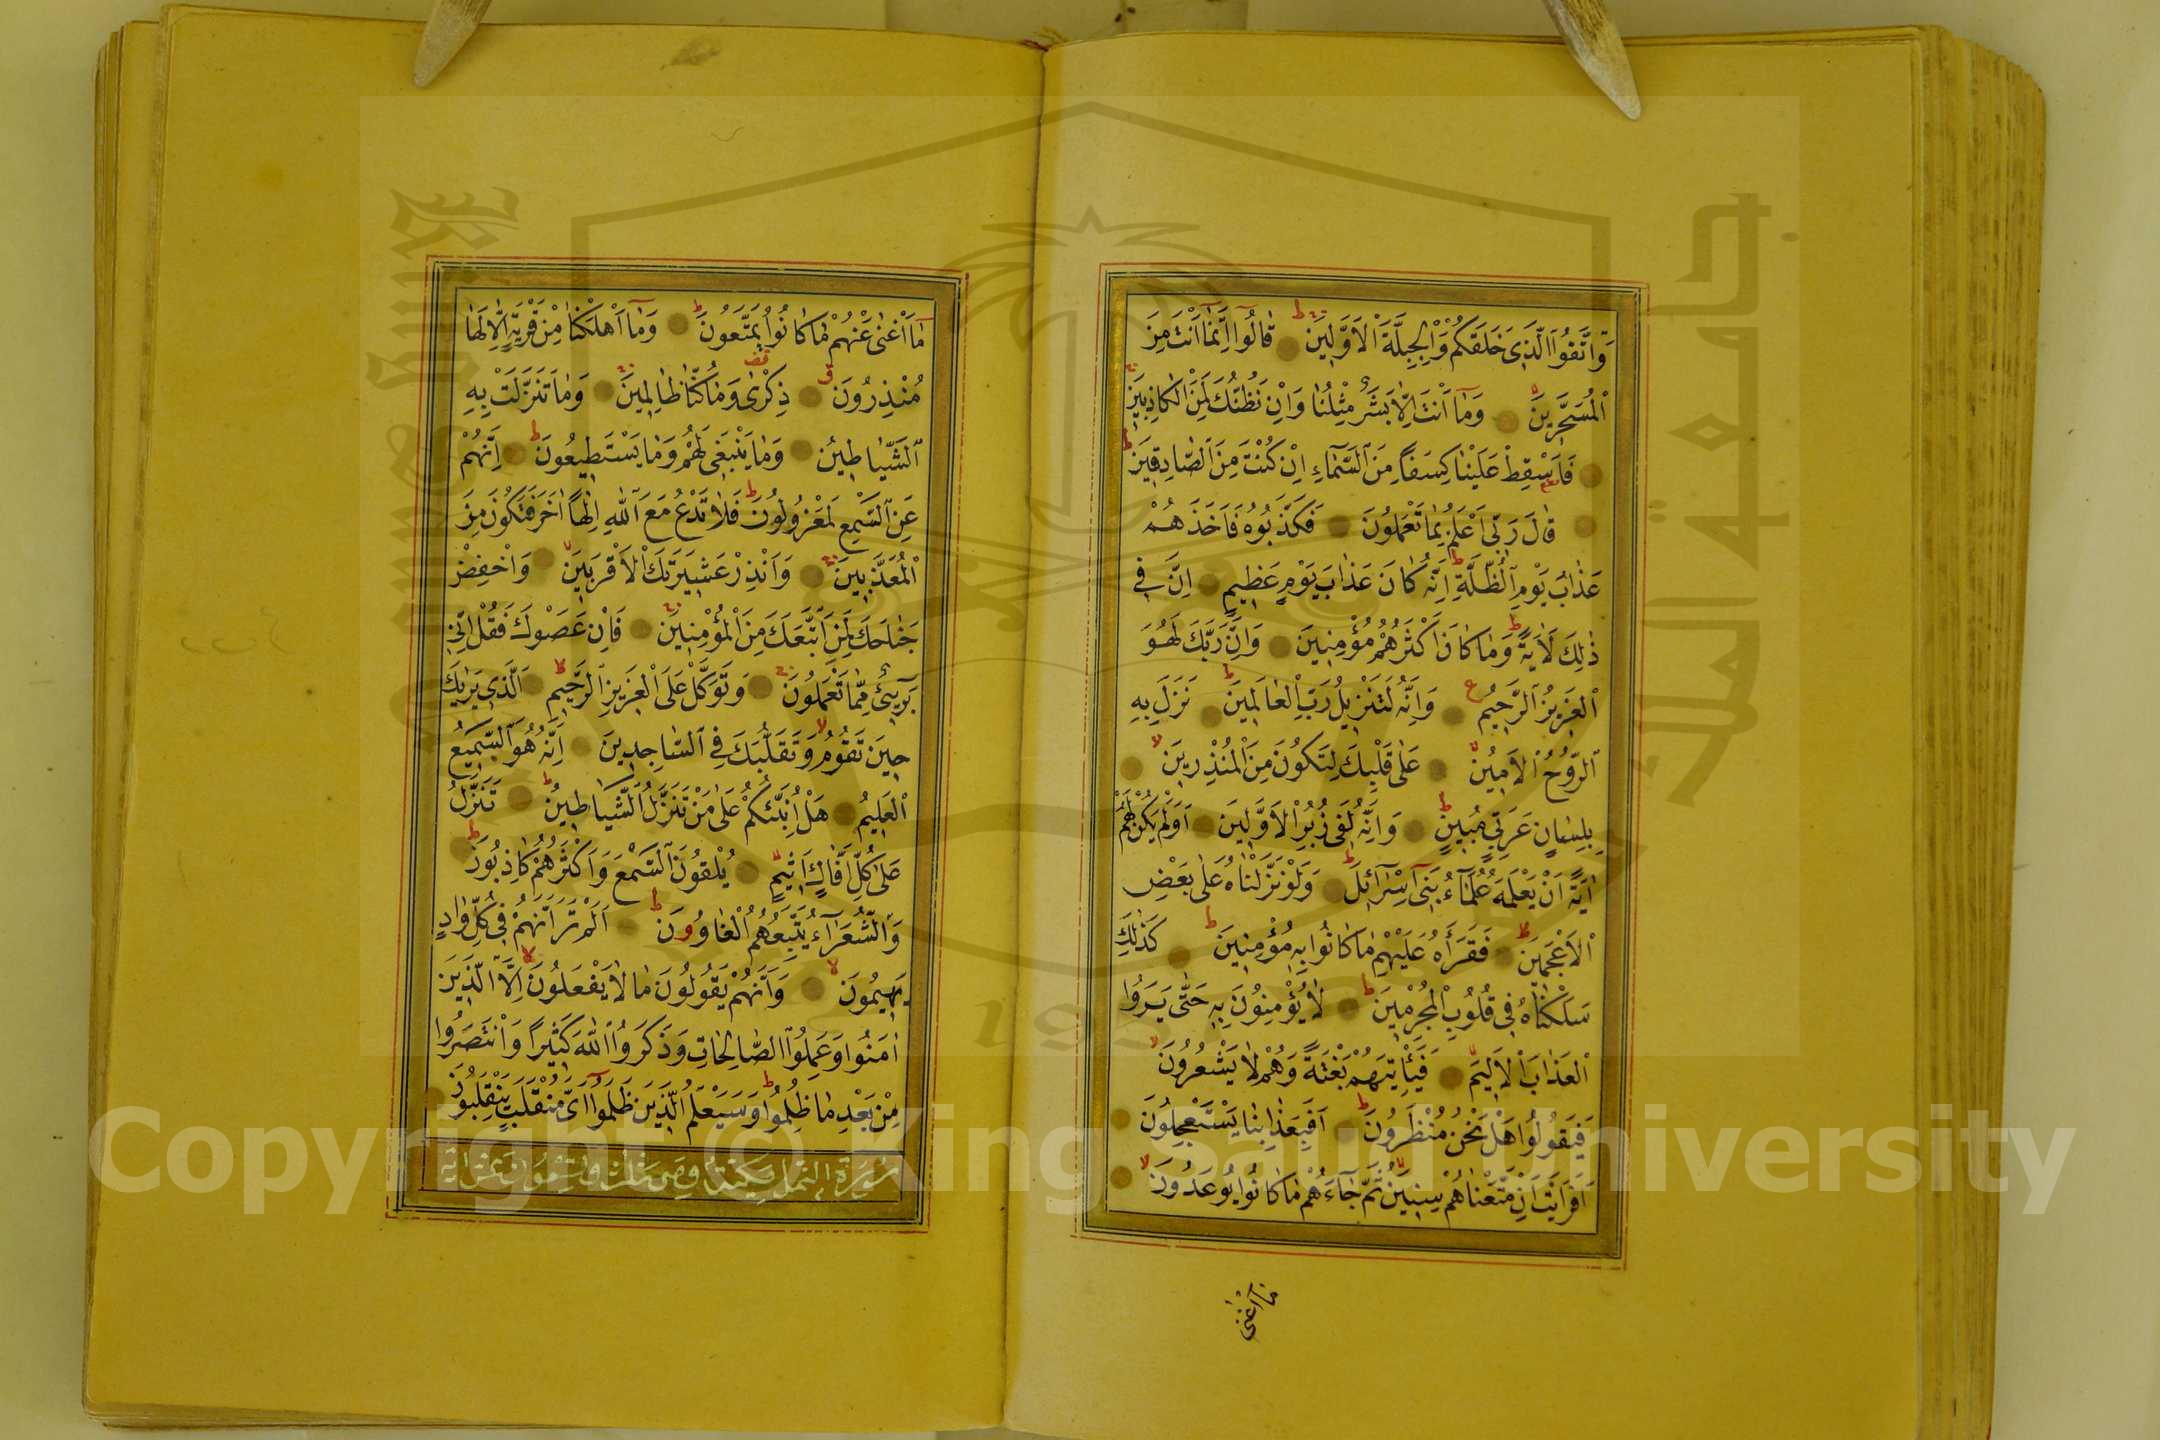 وَاتَّقُوا الَّذِي خَلَقَكُمْ وَالْجِبِلَّةَ الْاَوَّلِينَ قَالُوا اِنَّمَا اَنْتَ مِنَ
الْمُسَحَّرِينَ وَمَا اَنْتَ اِلَّا بَشَرٌ مِثْلُنَا وَاِنْ نَظُنُّكَ لَمِنَ الْكَاذِبِينَ
فَاَسْقِطْ عَلَيْنَا كِسَفًا مِنَ السَّمَاءِ اِنْ كُنْتَ مِنَ الصَّادِقِينَ
قَالَ رَبِّي اَعْلَمُ بِمَا تَعْمَلُونَ فَكَذَّبُوهُ فَاَخَذَهُمْ
عَذَابُ يَوْمِ الظُّلَّةِ اِنَّهُ كَانَ عَذَابَ يَوْمٍ عَظِيمٍ اِنَّ فِي
ذٰلِكَ لَاٰيَةً وَمَا كَانَ اَكْثَرُهُمْ مُؤْمِنِينَ وَاِنَّ رَبَّكَ لَهُوَ
الْعَزِيزُ الرَّحِيمُ وَاِنَّهُ لَتَنْزِيلُ رَبِّ الْعَالَمِينَ نَزَلَ بِهِ
الرُّوحُ الْاَمِينُ عَلٰى قَلْبِكَ لِتَكُونَ مِنَ الْمُنْذِرِينَ
بِلِسَانٍ عَرَبِيٍّ مُبِينٍ وَاِنَّهُ لَفِي زُبُرِ الْاَوَّلِينَ اَوَلَمْ يَكُنْ لَهُمْ
اٰيَةً اَنْ يَعْلَمَهُ عُلَمَاءُ بَنِي اِسْرَائِلَ وَلَوْ نَزَّلْنَاهُ عَلٰى بَعْضِ
الْاَعْجَمِينَ فَقَرَأَهُ عَلَيْهِمْ مَا كَانُوا بِهِ مُؤْمِنِينَ كَذٰلِكَ
سَلَكْنَاهُ فِي قُلُوبِ الْمُجْرِمِينَ لَا يُؤْمِنُونَ بِهِ حَتّٰى يَرَوُا
الْعَذَابَ الْاَلِيمَ فَيَأْتِيَهُمْ بَغْتَةً وَهُمْ لَا يَشْعُرُونَ
فَيَقُولُوا هَلْ نَحْنُ مُنْظَرُونَ اَفَبِعَذَابِنَا يَسْتَعْجِلُونَ
اَفَرَاَيْتَ اِنْ مَتَّعْنَاهُمْ سِنِينَ ثُمَّ جَاءَهُمْ مَا كَانُوا يُوعَدُونَ
مَا اَغْنٰى
مَا اَغْنٰى عَنْهُمْ مَا كَانُوا يُمَتَّعُونَ وَمَا اَهْلَكْنَا مِنْ قَرْيَةٍ اِلَّا لَهَا
مُنْذِرُونَ ذِكْرٰى وَمَا كُنَّا ظَالِمِينَ وَمَا تَنَزَّلَتْ بِهِ
الشَّيَاطِينُ وَمَا يَنْبَغِي لَهُمْ وَمَا يَسْتَطِيعُونَ اِنَّهُمْ
عَنِ السَّمْعِ لَمَعْزُولُونَ فَلَا تَدْعُ مَعَ اللّٰهِ اِلٰهًا اٰخَرَ فَتَكُونَ مِنَ
الْمُعَذَّبِينَ وَاَنْذِرْ عَشِيرَتَكَ الْاَقْرَبِينَ وَاخْفِضْ
جَنَاحَكَ لِمَنِ اتَّبَعَكَ مِنَ الْمُؤْمِنِينَ فَاِنْ عَصَوْكَ فَقُلْ اِنِّي
بَرِيءٌ مِمَّا تَعْمَلُونَ وَتَوَكَّلْ عَلَى الْعَزِيزِ الرَّحِيمِ الَّذِي يَرٰيكَ
حِينَ تَقُومُ وَتَقَلُّبَكَ فِي السَّاجِدِينَ اِنَّهُ هُوَ السَّمِيعُ
الْعَلِيمُ هَلْ اُنَبِّئُكُمْ عَلٰى مَنْ تَنَزَّلُ الشَّيَاطِينُ تَنَزَّلُ
عَلٰى كُلِّ اَفَّاكٍ اَثِيمٍ يُلْقُونَ السَّمْعَ وَاَكْثَرُهُمْ كَاذِبُونَ
وَالشُّعَرَاءُ يَتَّبِعُهُمُ الْغَاوُونَ اَلَمْ تَرَ اَنَّهُمْ فِي كُلِّ وَادٍ
يَهِيمُونَ وَاَنَّهُمْ يَقُولُونَ مَا لَا يَفْعَلُونَ اِلَّا الَّذِينَ
اٰمَنُوا وَعَمِلُوا الصَّالِحَاتِ وَذَكَرُوا اللّٰهَ كَثِيرًا وَانْتَصَرُوا
مِنْ بَعْدِ مَا ظُلِمُوا وَسَيَعْلَمُ الَّذِينَ ظَلَمُوا اَيَّ مُنْقَلَبٍ يَنْقَلِبُونَ
سورة النمل مكية وهي ثلث وتسعون آية
جامعة الملك
1957
Copyright © King Saud University